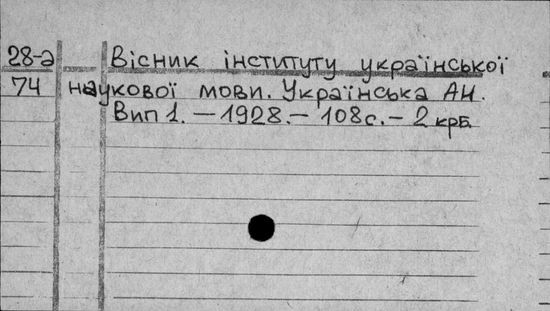 28-а Вісник інституту української
74 наукової мови. Українська АН.
Вип 1. – 1928. – 108 с. – 2 крб.